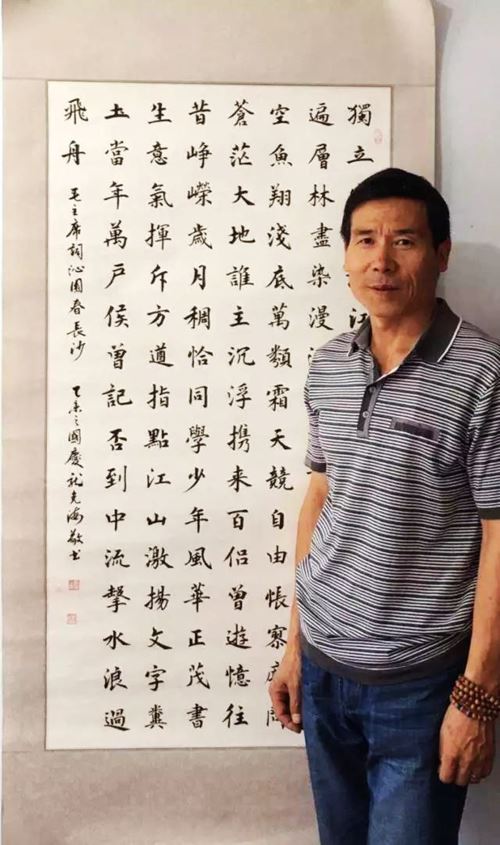 獨立江
遍層林盡染漫
空魚翔淺底萬類霜天競自由悵寥
蒼茫大地誰主沉浮携来百侣曾遊憶往
昔崢嶸歲月稠恰同學少年風華正茂書
生意氣揮斥方遒指點江山激揚文字糞
土當年萬户侯曾記否到中流擊水浪遏
飛舟 毛主席詞沁園春長沙 乙未之國慶克海敬书